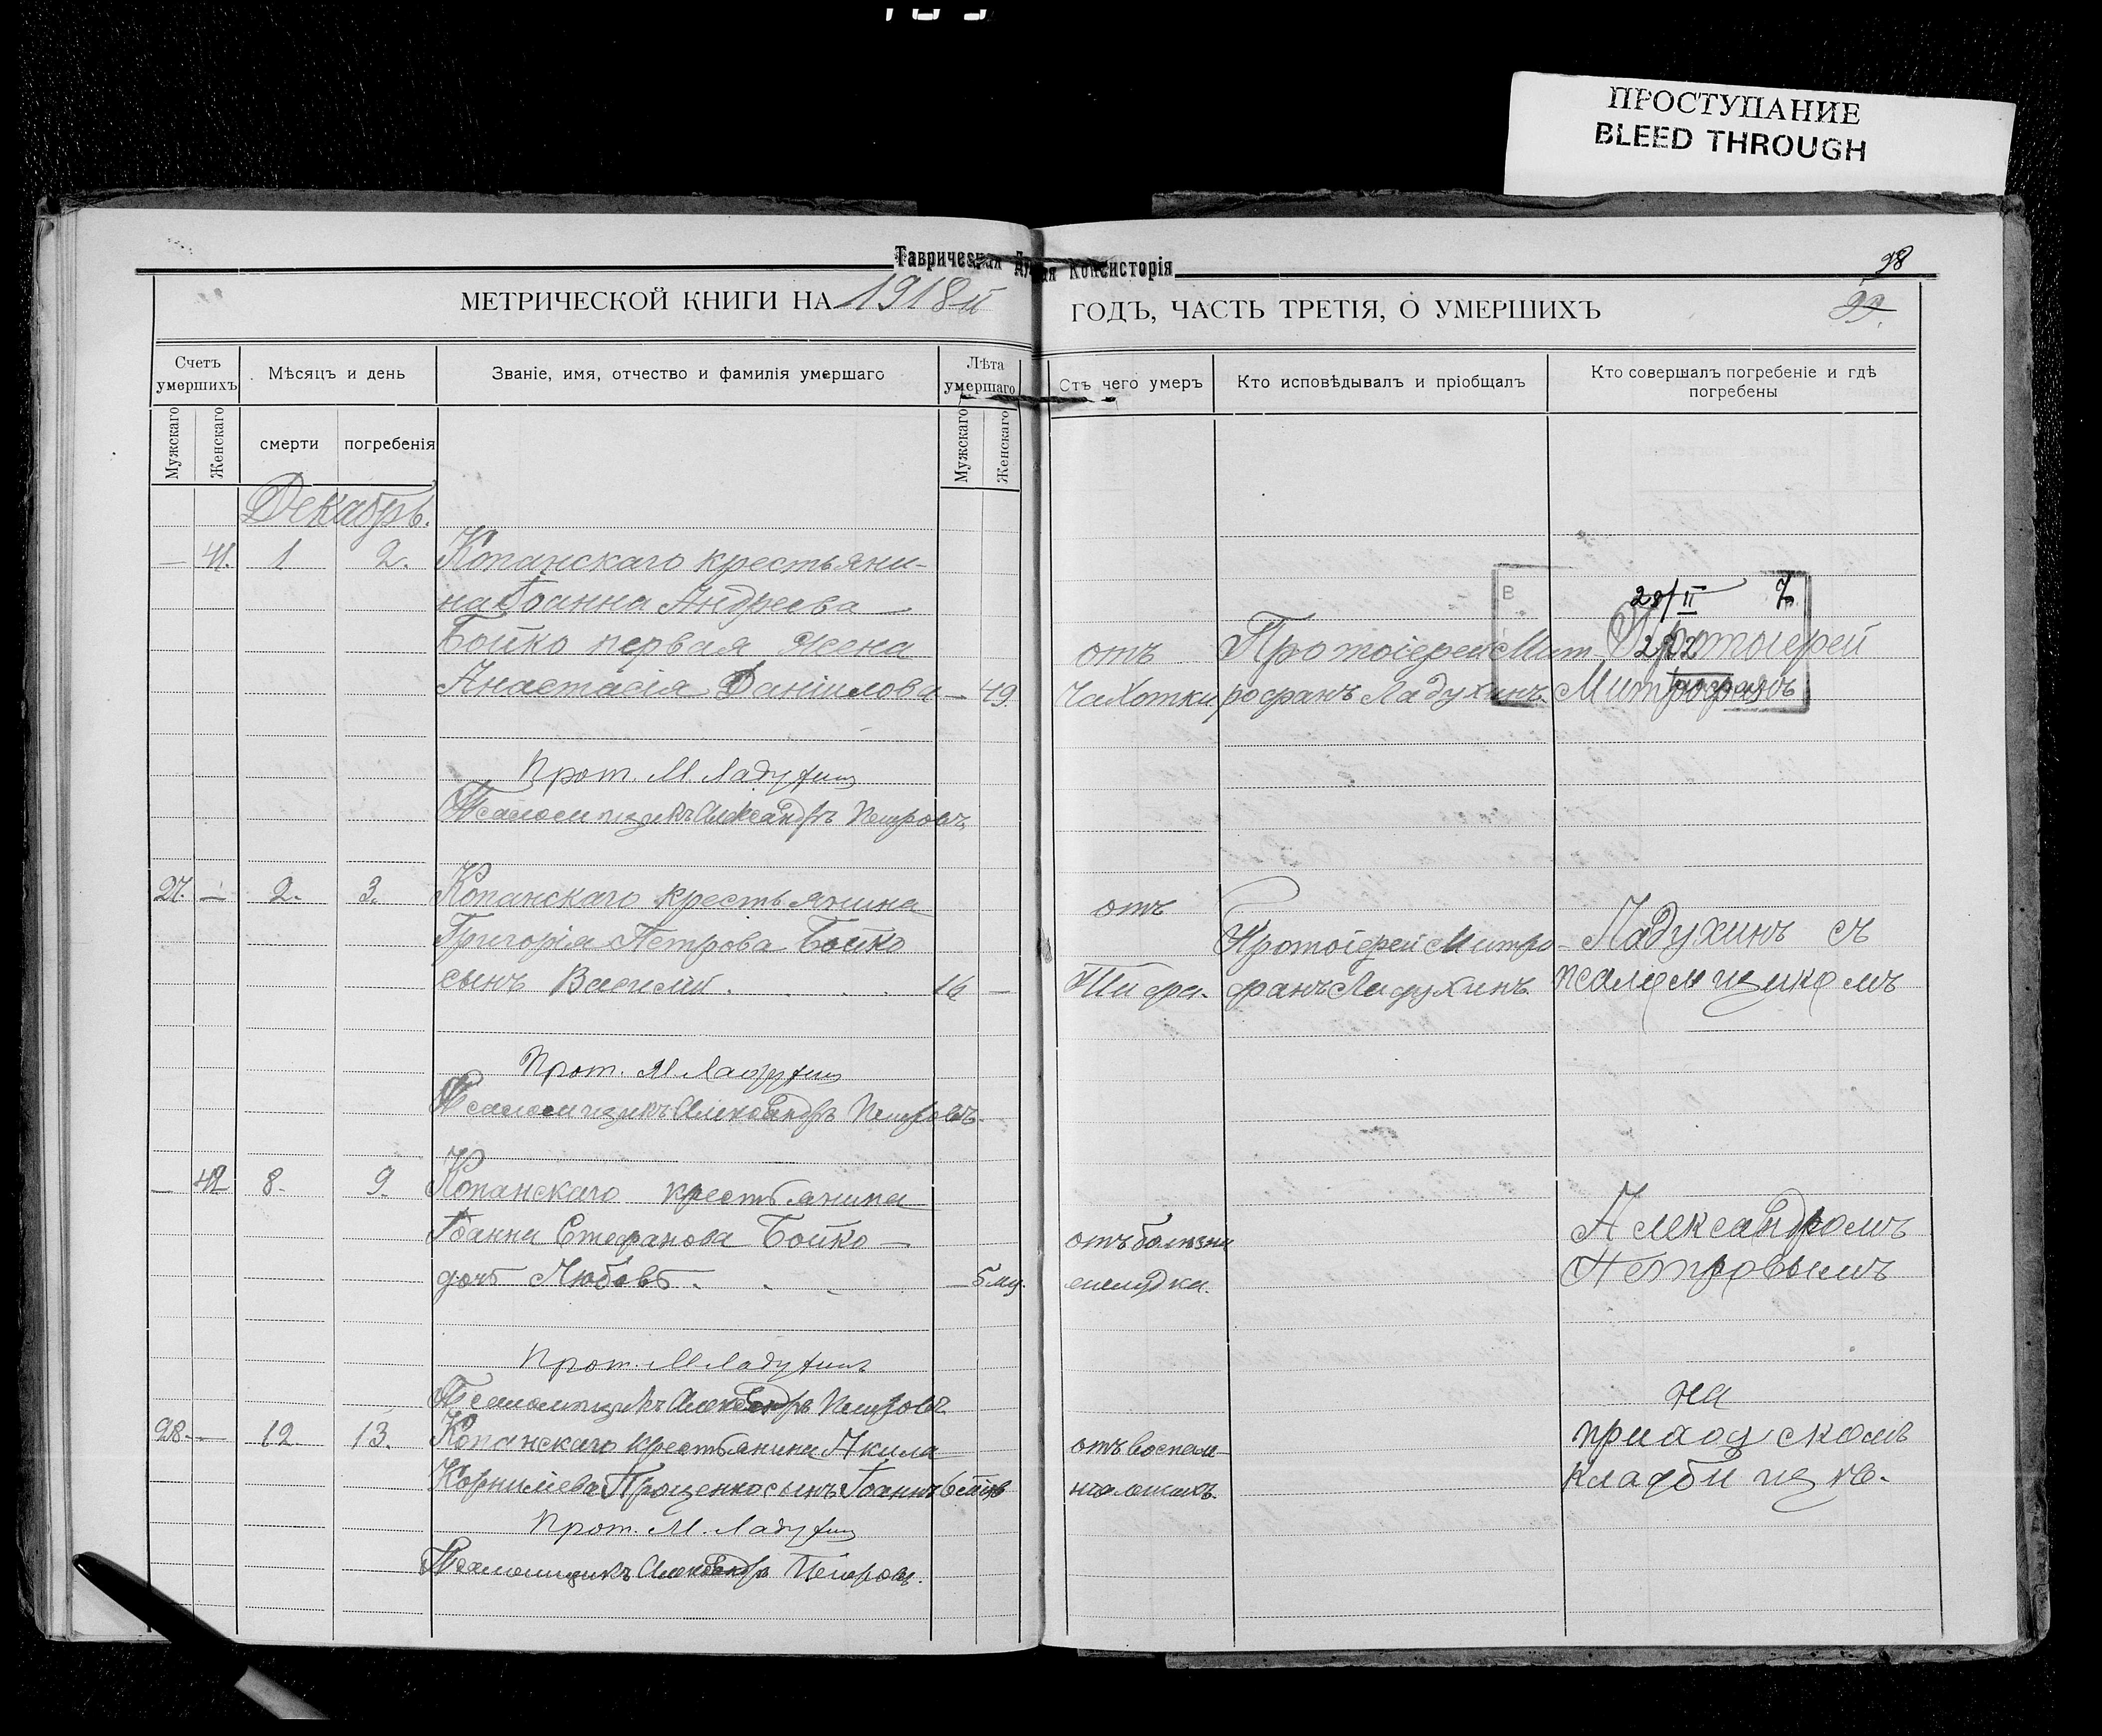 ПРОСТУПАНИЕ
BLEED THROUGH
Таврическая Духовная Консисторія
98
99.
МЕТРИЧЕСКОЙ КНИГИ НА 1918й ГОДЪ, ЧАСТЬ ТРЕТІЯ, О УМЕРШИХЪ
Счетъ умершихъ
Мѣсяцъ и день
Званіе, имя, отчество и фамилія умершаго
Лѣта умершаго
Отъ чего умеръ
Кто исповѣдывалъ и пріобщалъ
Кто совершалъ погребеніе и гдѣ погребены
Мужскаго
Женскаго
смерти
погребенія
Мужскаго
Женскаго
Декабрь.
— 41. 1 2. Копанскаго крестьяни-
на Іоанна Андреева
Бойко первая жена
Анастасія Даніилова — 49.
отъ
Чахотки
Протоіерей Мит-
рофанъ Ладухинъ.
28/II 7
Протоіерей
Митрофанъ
Прот. М. Ладухинъ
Псаломщикъ Александръ Петровъ
27. — 2. 3. Копанскаго крестьянина
Григорія Петрова Бойко
сынъ Василій. 16 —
отъ
Тифа.
Протоіерей Митро-
фанъ Ладухинъ.
Ладухинъ съ
псаломщикомъ
Прот. М. Ладухинъ
Псаломщикъ Александръ Петровъ.
— 42 8. 9. Копанскаго крестьянина
Іоанна Стефанова Бойко —
дочь Любовь. — 5 м.
отъ болѣзни
желудка.
Александромъ
Петровымъ
Прот. М. Ладухинъ
Псаломщикъ Александръ Петровъ
28. — 12. 13. Копанскаго крестьянина Акила
Корниліева Проценко сынъ Іоаннъ 6
отъ воспале-
нія
на
приходскомъ
кладбищѣ.
Прот. М. Ладухинъ
Псаломщикъ Александръ Петровъ.